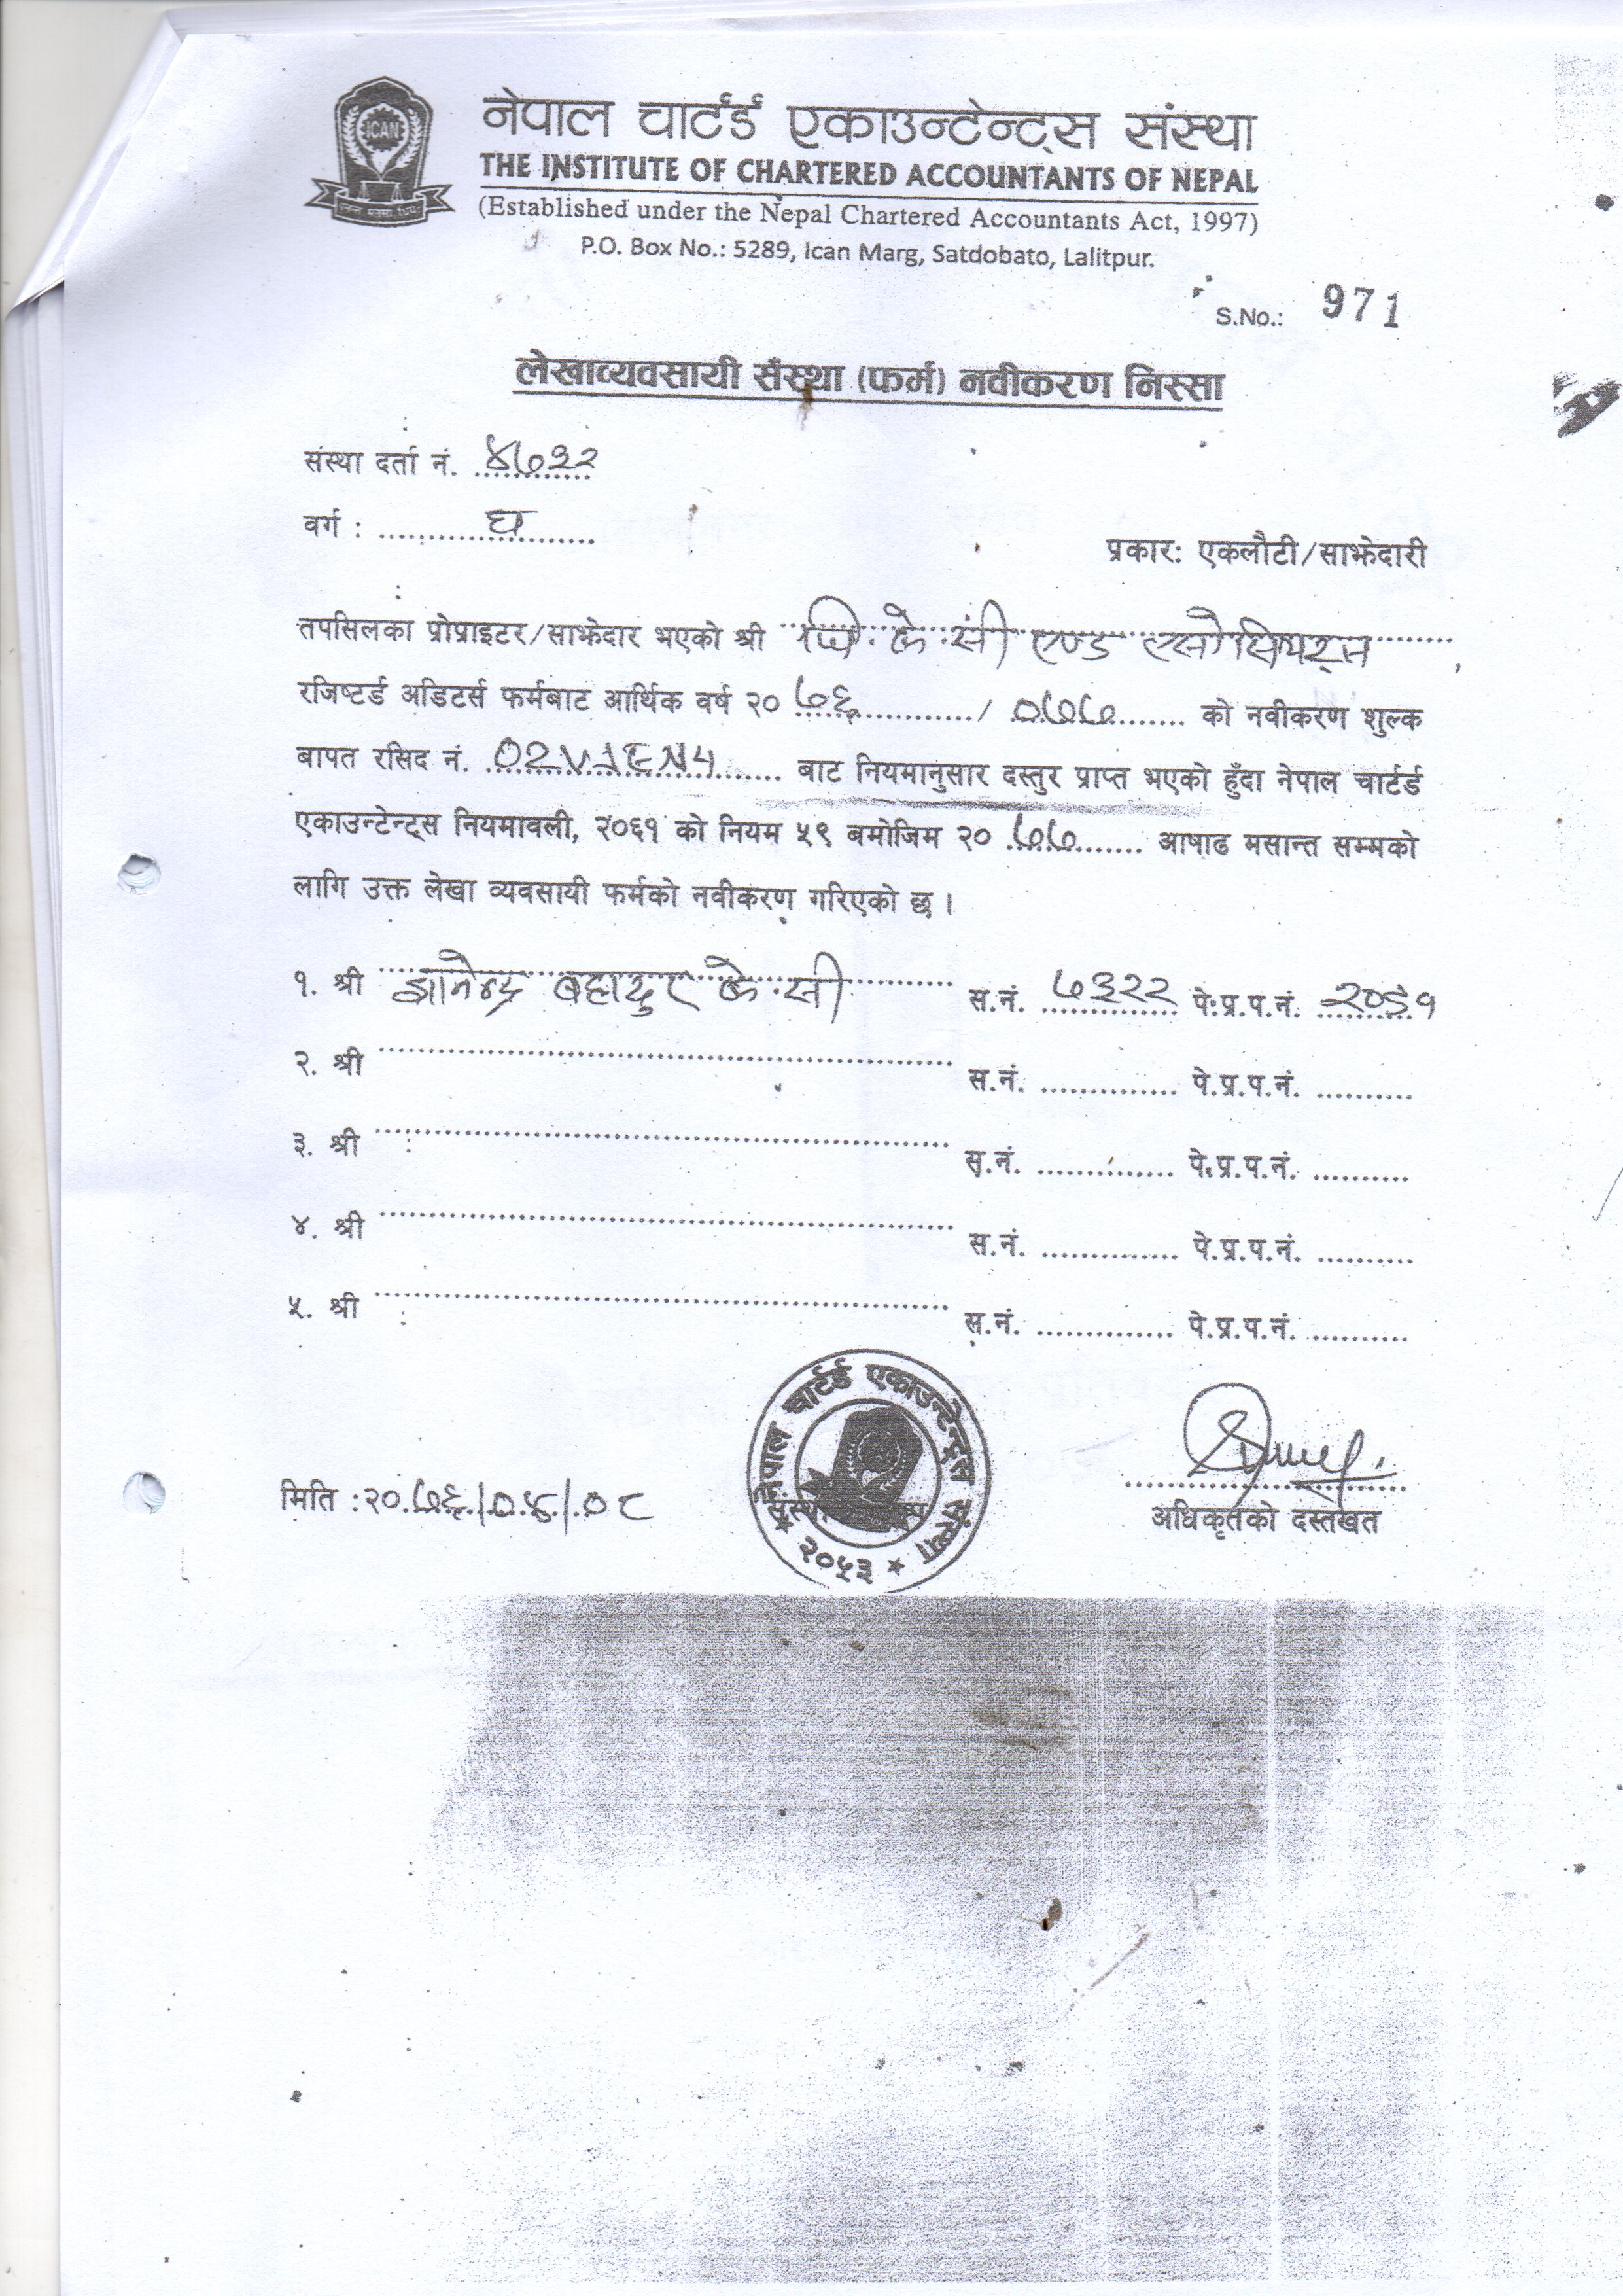 ICAN
नेपाल चार्टर्ड एकाउन्टेन्ट्स संस्था
THE INSTITUTE OF CHARTERED ACCOUNTANTS OF NEPAL
(Established under the Nepal Chartered Accountants Act, 1997)
P.O. Box No.: 5289, Ican Marg, Satdobato, Lalitpur.
S.No.: 971
लेखाव्यवसायी सँस्था (फर्म) नवीकरण निस्सा
संस्था दर्ता नं. ४७३२
वर्ग : घ
प्रकार: एकलौटी/साझेदारी
तपसिलका प्रोप्राइटर/साझेदार भएको श्री के.सी एण्ड एसोसियट्स,
रजिष्टर्ड अडिटर्स फर्मबाट आर्थिक वर्ष २०७६/०७७ को नवीकरण शुल्क
बापत रसिद नं. बाट नियमानुसार दस्तुर प्राप्त भएको हुँदा नेपाल चार्टर्ड
एकाउन्टेन्ट्स नियमावली, २०६१ को नियम ५९ बमोजिम २०७७ आषाढ मसान्त सम्मको
लागि उक्त लेखा व्यवसायी फर्मको नवीकरण गरिएको छ ।
१. श्री ज्ञानेन्द्र बहादुर के.सी स.नं. ७३२२ पे.प्र.प.नं.
२. श्री स.नं. पे.प्र.प.नं.
३. श्री स.नं. पे.प्र.प.नं.
४. श्री स.नं. पे.प्र.प.नं.
५. श्री स.नं. पे.प्र.प.नं.
नेपाल चार्टर्ड एकाउन्टेन्ट्स संस्था
२०५३
मिति :२०७६/०४/०८
अधिकृतको दस्तखत